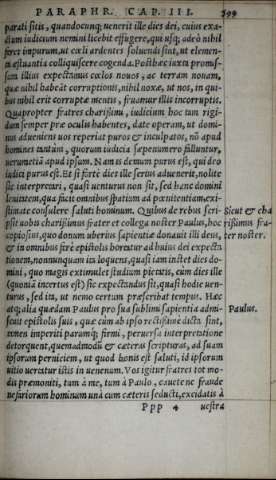 PARAPHR. CAP. III. 599
parati sitis, quandocunq; uenerit ille dies dei, cuius exa-
ctum iudicium nemini licebit effugere, qui usq; adeò nihil
feret impurum, ut cœli ardentes soluendi sint, ut elemen-
ta æstuantia colliquiscere cogenda. Post hæc iuxta promis-
sum illius expectamus cœlos nouos, ac terram nouam,
quæ nihil habeāt corruptionis, nihil noxæ, ut nos, in qui-
bus nihil erit corruptæ mentis, fruamur illis incorruptis.
Quapropter fratres charissimi, iudicium hoc tam rigi-
dum semper præ oculis habentes, date operam, ut domi-
nus adueniens uos reperiat puros et inculpatos, nō apud
homines tantùm, quorum iudicia sæpenumero falluntur,
uerumetiā apud ipsum. Nam is demum purus est, qui deo
iudici purus est. Et si fortè dies ille serius aduenerit, nolite
sic interpretari, quasi uenturus non sit, sed hanc domini
lenitatem, qua sinit omnibus spatium ad pœnitentiam, exi-
stimate consulere saluti hominum. Quibus de rebus scri-
psit uobis charissimus frater et collega noster Paulus, hoc
copiosius, quo donum uberius sapientiæ donauit illi deus,
& in omnibus ferè epistolis hortatur ad huius dei expecta
tionem, nonnunquam ita loquens, quasi iam instet dies do-
mini, quo magis extimulet studium pietatis, cùm dies ille
(quoniā incertus est) sic expectandus sit, quasi hodie uen-
turus, sed ita, ut nemo certum præscribat tempus. Hæc
atq; alia quædam Paulus pro sua sublimi sapientia admi-
scuit epistolis suis, quæ cùm ab ipso rectissimè dicta sint,
tamen imperiti parumq; firmi, peruersa interpretatione
detorquent, quemadmodū & cæteras scripturas, ad suam
ipsorum perniciem, ut quod bonis est saluti, id ipsorum
uitio uertatur istis in uenenum. Vos igitur fratres tot mo-
dis præmoniti, tum à me, tum à Paulo, cauete ne fraude
nefariorum hominum unà cum cæteris seducti, excidatis à
Ppp 4 uestra
Sicut & cha
rissimus fra-
ter noster.
Paulus.